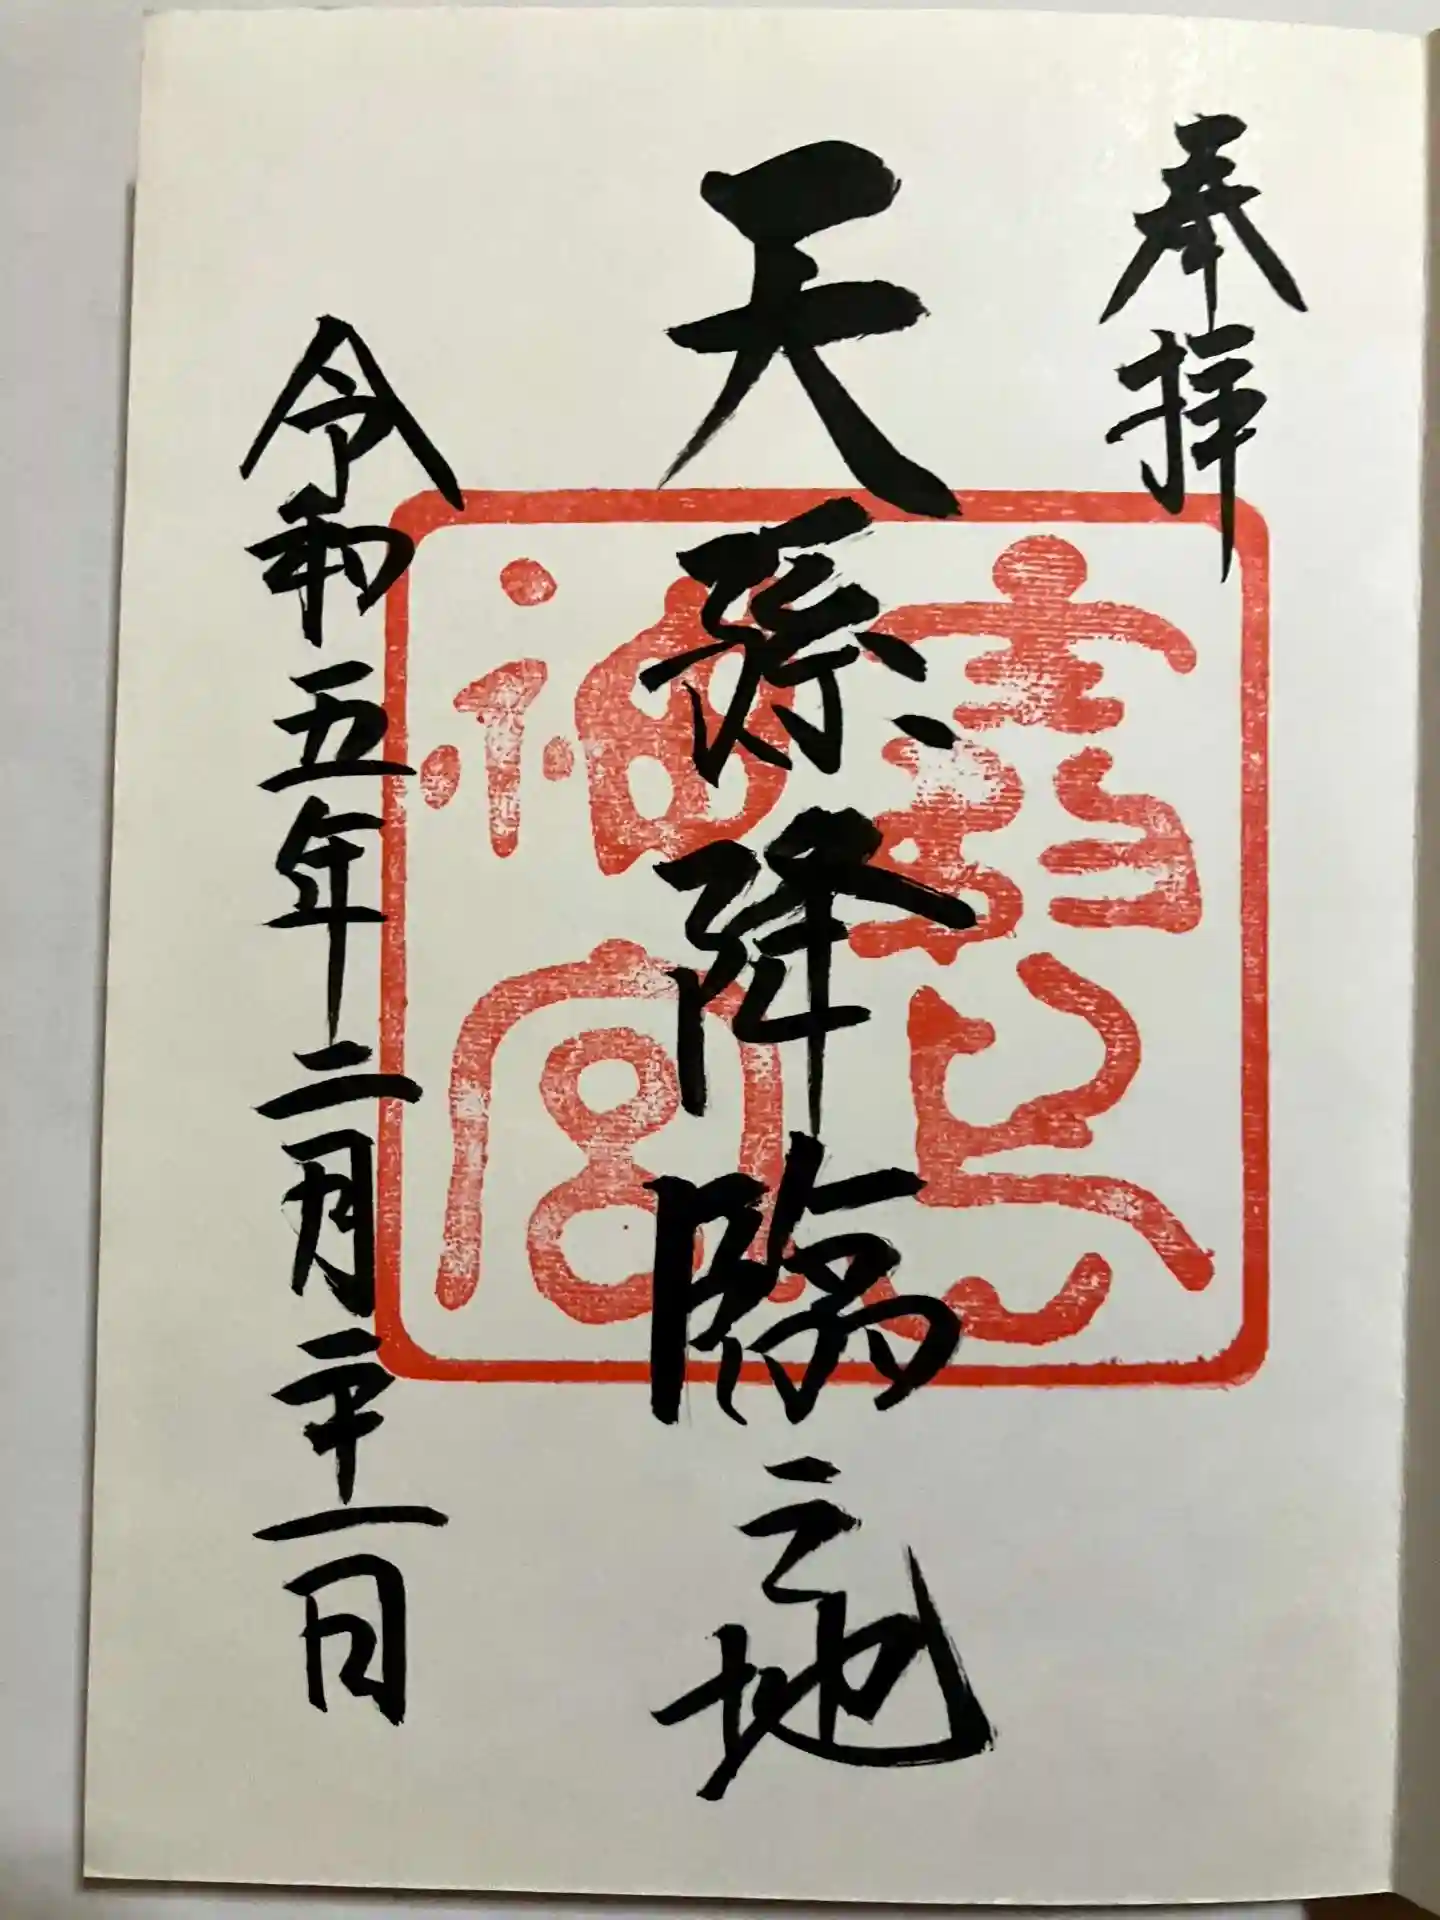 奉拝
霧島神宮
天孫降臨之地
令和五年二月二十一日